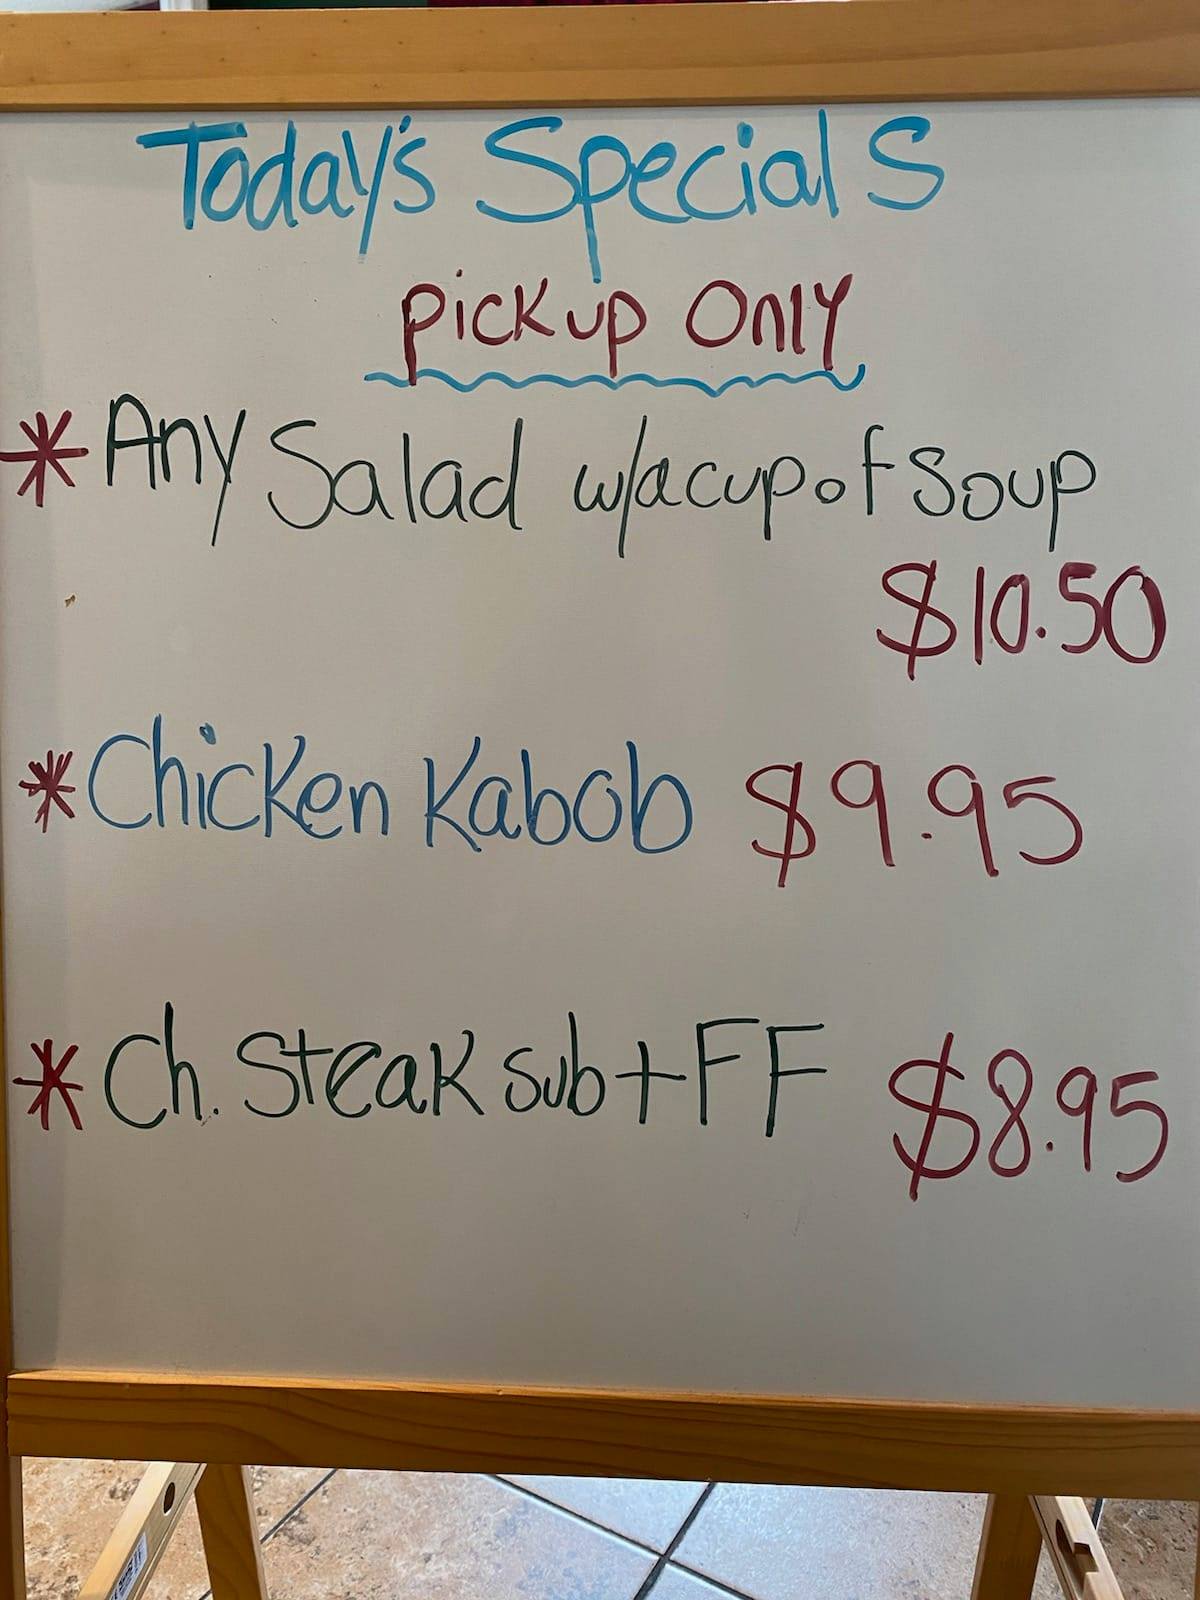 Today's Specials
Pickup Only
* Any Salad w/a cup of Soup
$10.50
* Chicken Kabob $9.95
* Ch. Steak sub + FF $8.95